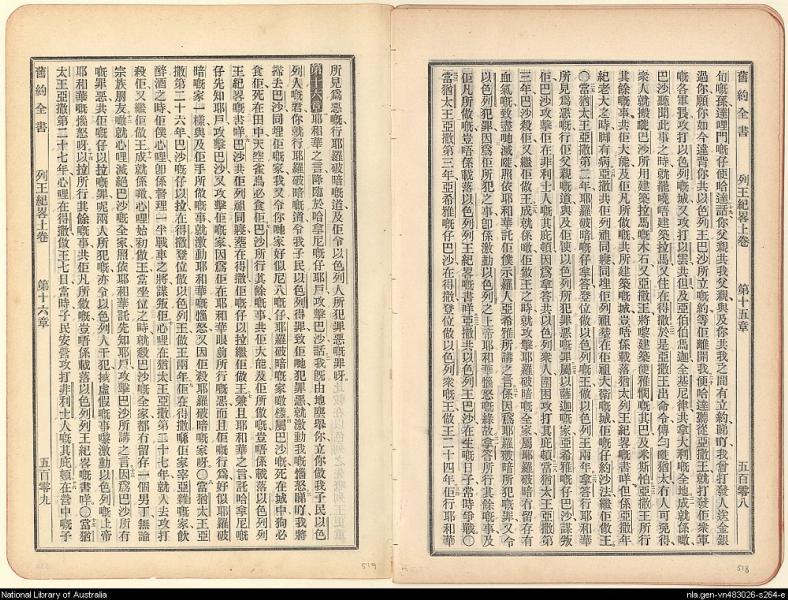 舊約全書 列王紀畧上卷 第十五章 五百零八
過你願你如今違背你共以色列王巴沙所立嘅約等佢離開我便哈達聽從亞撒王就打發佢衆軍
嘅各軍長攻打以色列嘅城又攻打以雲共但及亞伯伯馬迦全基尼律共拿大利嘅全地成就係噉
巴沙聽聞此事之時就罷曉唔建築拉馬又住在得撒於是亞撒王出命令傳勻曬猶太有人可免得
衆人就搬曬巴沙所用建築拉馬嘅木石又亞撒王將嚟建築便雅憫嘅其巴及米斯怕亞撒王所行
其餘嘅事共佢大能及佢凡所做嘅共所建築嘅城豈唔係載落猶太列王紀畧嘅書咩但係亞撒年
紀老大之時脚有病亞撒共佢列祖同寢同埋佢列祖葬在佢祖大衛嘅城佢嘅仔約沙法繼佢做王
○當猶太王亞撒第二年耶羅破暗嘅仔拿答登位做以色列嘅王做以色列王兩年拿答行耶和華
所見爲惡嘅行佢父親嘅道與及佢使以色列所犯罪惡嘅罪屬以薩迦嘅家亞希雅嘅仔巴沙謀叛
佢巴沙攻擊佢在非利士人嘅其庇頓因爲拿答共以色列衆人圍困攻打其庇頓當猶太王亞撒第
三年巴沙殺佢又繼佢做王成就係噉佢做王之時就攻擊耶羅破暗全家屬耶羅破暗有留存有
血氣嘅致盡哋滅曬照依耶和華託佢僕示羅人亞希雅所講之言係因爲耶羅破暗所犯嘅罪又令
以色列犯罪因爲佢所犯之事即係激動以色列之上帝耶和華惱怒嘅緣故拿答所行其餘嘅事及
佢凡所做嘅豈唔係載落以色列列王紀畧嘅書咩亞撒共以色列王巴沙在生嘅日子常時爭戰○
當猶太王亞撒第三年亞希雅嘅仔巴沙在得撒登位做以色列衆嘅王做王二十四年佢行耶和華
舊約全書 列王紀畧上卷 第十六章 五百零九
所見爲惡嘅行耶羅破暗嘅道及佢令以色列人所犯罪惡嘅罪呀
第十六章 耶和華之言降臨於哈拿尼嘅仔耶戶攻擊巴沙話我旣由地塵舉你立你做我子民以色
列人嘅君你就行耶羅破暗嘅道令我子民以色列得罪致佢哋犯罪惡就激動我嘅惱怒睇吖我將
食佢死在田中天空雀鳥必食佢巴沙所行其餘嘅事共佢大能及佢所做嘅豈唔係載落以色列列
王紀畧嘅書咩巴沙共佢列祖同寢葬在得撒佢嘅仔以拉繼佢做王兼且耶和華之言託哈拿尼嘅
仔先知耶戶攻擊巴沙又攻擊佢嘅家因爲佢在耶和華眼前所行嘅惡而且佢嘅行爲好似耶羅破
暗嘅家一樣與及佢手所做嘅事就激動耶和華嘅惱怒又因佢殺耶羅破暗嘅家呀○當猶太王亞
撒第二十六年巴沙嘅仔以拉在得撒登位做以色列王做王兩年佢在得撒喺佢家宰亞雜嘅家飲
醉酒之時佢僕心唎即係督理一半戰車之將謀叛佢心唎在猶太王亞撒第二十七年就入去攻打
殺佢又繼佢做王成就係噉心唎始初做王當坐位之時就殺巴沙嘅全家都冇留存一個男丁無論
宗族朋友噉就心唎滅絕巴沙嘅全家照依耶和華託先知耶戶攻擊巴沙所講之言因爲巴沙所有
嘅罪惡共佢嘅仔以拉嘅罪呢兩人所犯嘅亦令以色列人干犯拜虛假嘅事嚟激動以色列嘅上帝
耶和華嘅惱怒呀以拉所行其餘嘅事共佢凡所做嘅豈唔係載落以色列列王紀畧嘅書咩○當猶
太王亞撒第二十七年心唎在得撒做王七日當時子民安營攻打非利士人嘅其庇頓在營中嘅子
National Library of Australia
nla.gen-vn483026-s264-e